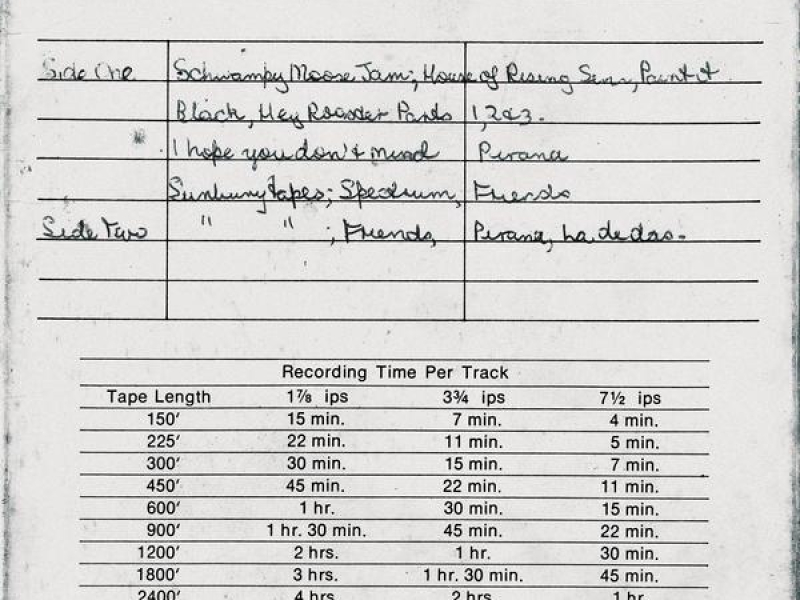 Side One Schwampy Moose Jam; House of Rising Sun, Paint it
Black, Hey Rooster Pants 1, 2 & 3.
I hope you don't mind Pirana
Sunbury tapes; Spectrum, Friends
Side Two " " ; Friends, Pirana, La de das.
Recording Time Per Track
Tape Length 1⅞ ips 3¾ ips 7½ ips
150' 15 min. 7 min. 4 min.
225' 22 min. 11 min. 5 min.
300' 30 min. 15 min. 7 min.
450' 45 min. 22 min. 11 min.
600' 1 hr. 30 min. 15 min.
900' 1 hr. 30 min. 45 min. 22 min.
1200' 2 hrs. 1 hr. 30 min.
1800' 3 hrs. 1 hr. 30 min. 45 min.
2400' 4 hrs. 2 hrs. 1 hr.